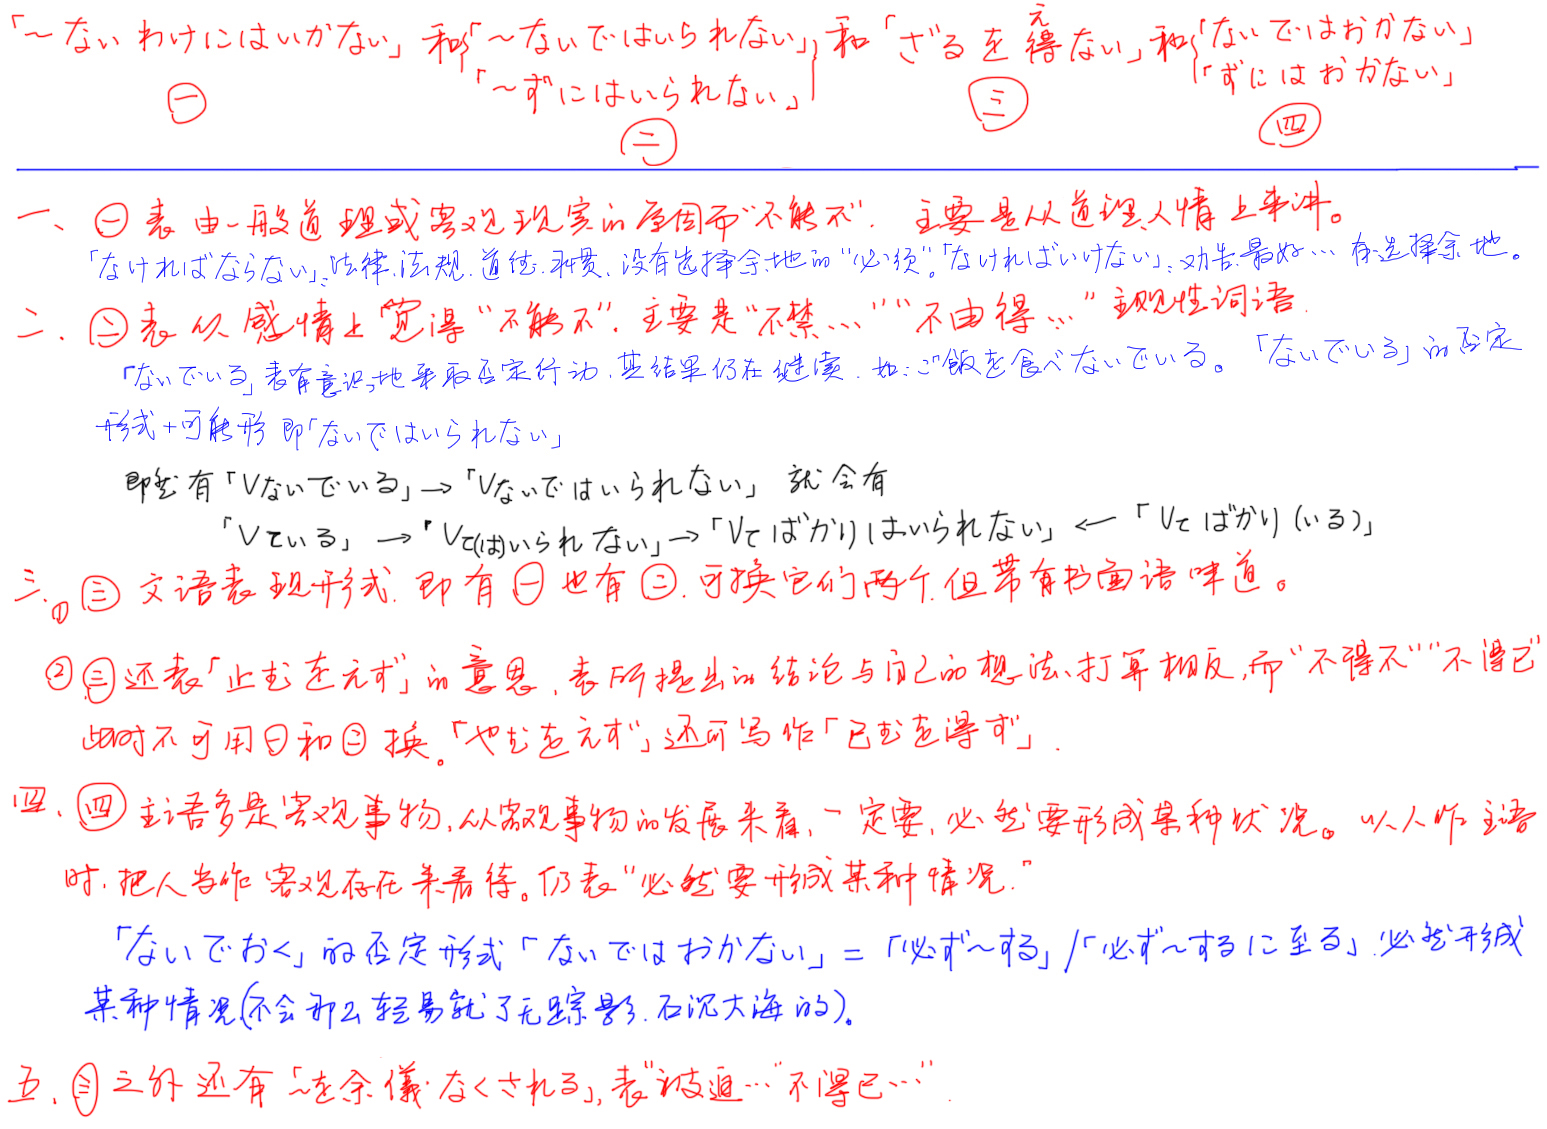 「～ないわけにはいかない」和「～ないではいられない」和「ざるを得ない」和「ないではおかない」
え
「～ずにはいられない」
「ずにはおかない」
㊀ ㊁ ㊂ ㊃
一、㊀表由一般道理或客观现实的原因而“不能不”. 主要是从道理人情上来讲。
「なければならない」:法律.法规.道德.习惯.没有选择余地的“必须”。「なければいけない」:劝告.最好… 有选择余地。
二.㊁表从感情上觉得“不能不”. 主要是“不禁…”“不由得…”主观性词语.
「ないでいる」表有意识地采取否定行动.其结果仍在继续.如:ご飯を食べないでいる。「ないでいる」的否定
形式+可能形 即「ないではいられない」
即然有「Vないでいる」→「Vないではいられない」 就会有
「Vている」→「Vて(は)いられない」→「Vてばかりはいられない」←「Vてばかり(いる)」
三.①㊂文语表现形式.即有㊀也有㊁.可换它们两个.但带有书面语味道。
②㊂还表「止むをえず」的意思.表所提出的结论与自己的想法、打算相反,而“不得不”“不得已”
此时不可用㊀和㊁换。「やむをえず」还可写作「已むを得ず」.
四.㊃主语多是客观事物,从客观事物的发展来看、一定要,必然要形成某种状况。以人作主语
时.把人当作客观存在来看待。仍表“必然要形成某种情况.”
「ないでおく」的否定形式「ないではおかない」=「必ず～する」/「必ず～するに至る」.必然形成
某种情况(不会那么轻易就了无踪影.石沉大海的)。
五.㊂之外还有「～を余儀なくされる」,表“被迫…”“不得已…”.